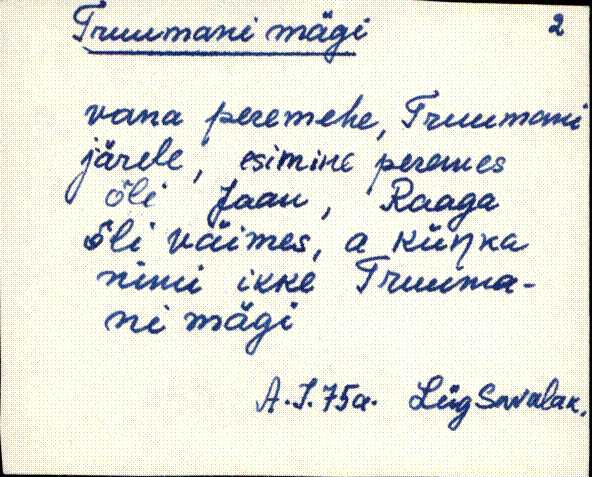 Truumani mägi 2
vana peremehe, Truumani
järele, esimine peremes
õli Jaan, Raaga
õli väimes, a küŋka
nimi ikke Truuma-
ni mägi
A. I. 75a. Lüg